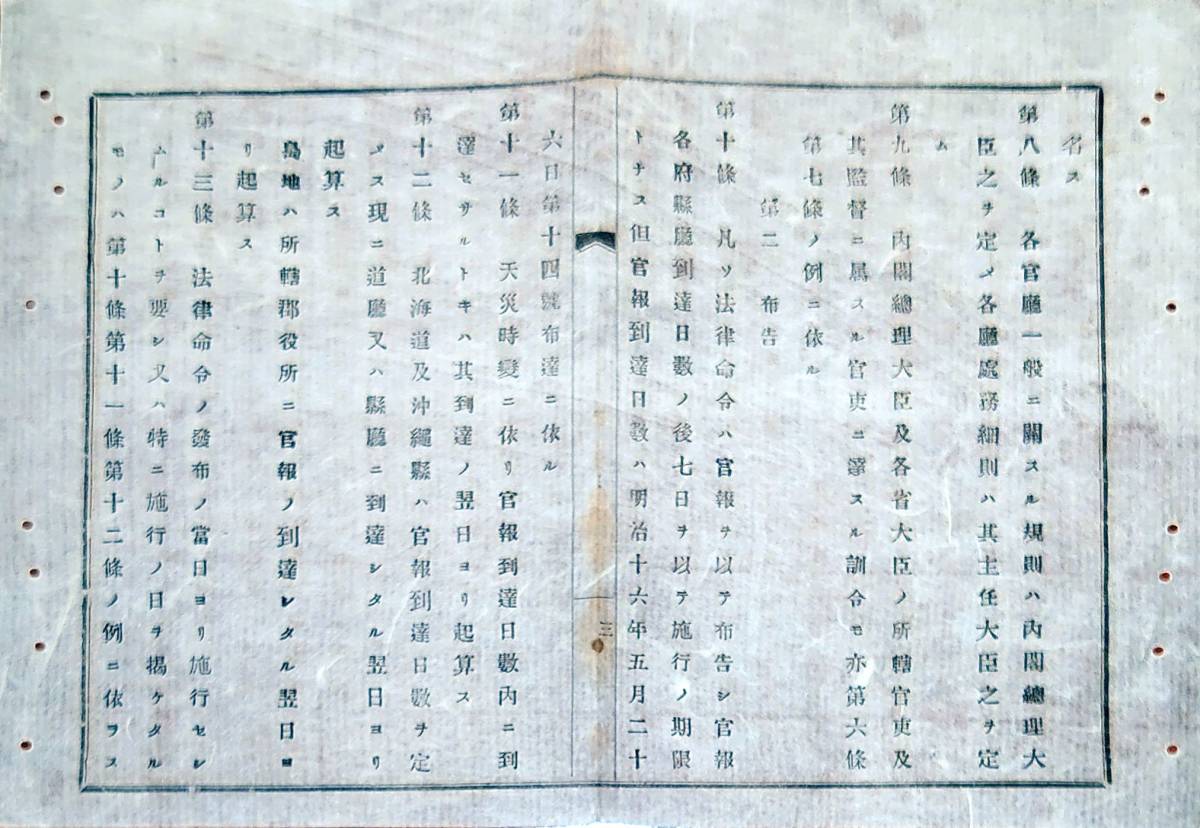 名ス
第八條　各官廳一般ニ關スル規則ハ內閣總理大
臣之ヲ定メ各廳處務細則ハ其主任大臣之ヲ定
ム
第九條　內閣總理大臣及各省大臣ノ所轄官吏及
其監督ニ属スル官吏ニ達スル訓令モ亦第六條
第七條ノ例ニ依ル
第二　布告
第十條　凡ソ法律命令ハ官報ヲ以テ布告シ官報
各府縣廳到達日數ノ後七日ヲ以テ施行ノ期限
トナス但官報到達日數ハ明治十六年五月二十
三
六日第十四號布達ニ依ル
第十一條　天災時變ニ依リ官報到達日數內ニ到
達セサルトキハ其到達ノ翌日ヨリ起算ス
第十二條　北海道及沖繩縣ハ官報到達日數ヲ定
メス現ニ道廳又ハ縣廳ニ到達シタル翌日ヨリ
起算ス
島地ハ所轄郡役所ニ官報ノ到達シタル翌日ヨ
リ起算ス
第十三條　法律命令ノ發布ノ當日ヨリ施行セシ
ムルコトヲ要シ又ハ特ニ施行ノ日ヲ揭ケタル
モノハ第十條第十一條第十二條ノ例ニ依ラス